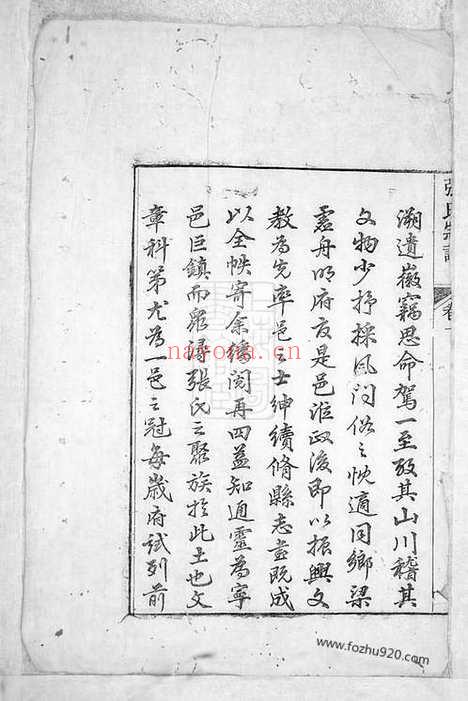 張氏宗譜
卷一
溯遺徽竊思命駕一至攷其山川稽其
文物少抒採風問俗之忱適同鄉梁
雲舟明府友是邑涖政後即以振興文
教為先率邑之士紳續脩縣志並既成
以全帙寄余繙閱再四益知通靈為寧
邑巨鎮而眾潯張氏之聚族於此土也文
章科第尤為一邑之冠每歲府試列前
nayona.cn
www.fozhu920.com